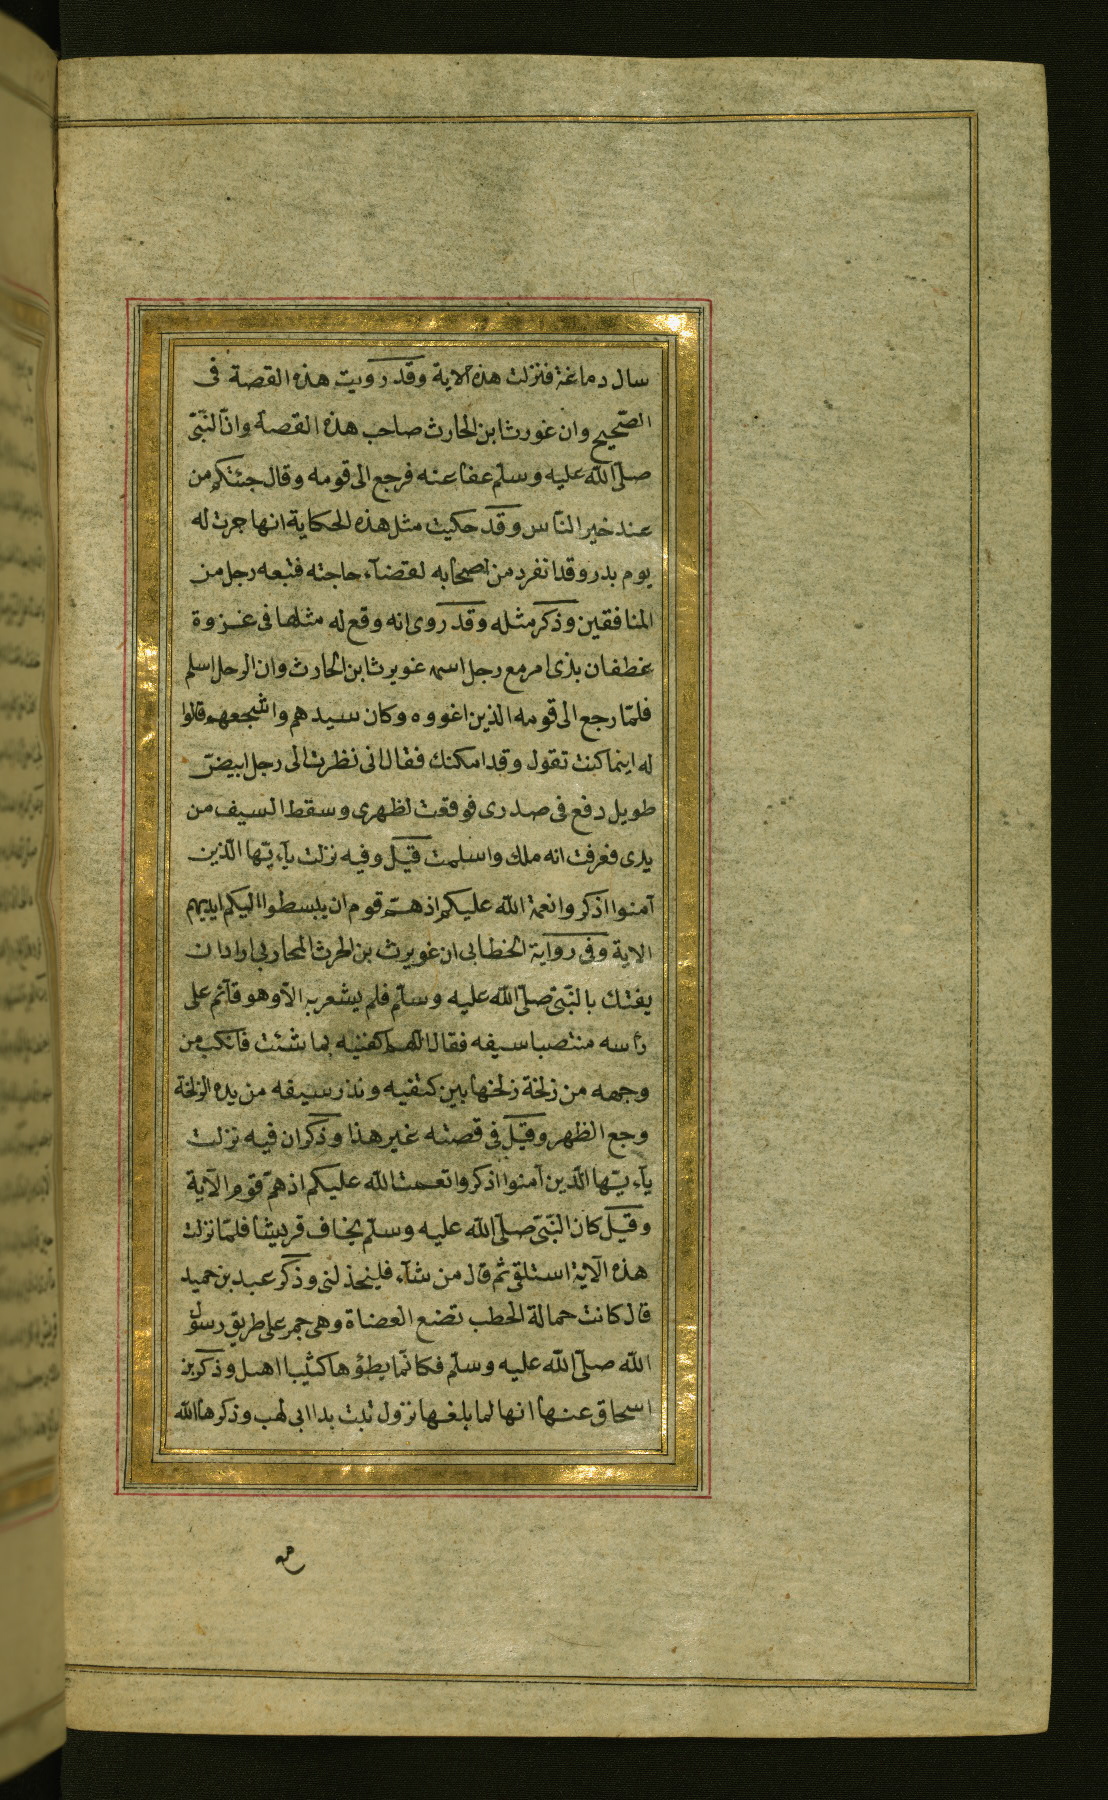 سال دماغه فنزلت هذه الاية وقد رويت هذه القصة فى
الصّحيح وان غورثا بن الحارث صاحب هذه القصة وانّ النّبّى
صلّى اللّه عليه وسلّم عفا عنه فرجع الى قومه وقال جئتكم من
عند خير النّاس وقد حكيت مثل هذه الحكاية انها جرت له
يوم بدر وقد انفرد من اصحابه لقضآء حاجته فتبعه رجل من
المنافقين وذكر مثله وقد روى انه وقع له مثلها فى غزوة
غطفان بذى امر مع رجل اسمه غويرثا بن الحارث وان الرجل اسلم
فلمّا رجع الى قومه الذين اغووه وكان سيدهم واشجعهم قالوا
له اينما كنت تقول وقد امكنك فقال انى نظرت الى رجل ابيضّ
طويل دفع فى صدرى فوقعت لظهرى وسقط السيف من
يدى فعرفت انه ملك واسلمت قيل وفيه نزلت يآءيّها الّذين
آمنوا اذكروا نعمة اللّه عليكم اذ همّ قوم ان يبسطوا اليكم ايديهم
الاية وفى رواية الخطابى ان غويرث بن الحرث المحاربى اراد ان
يفتك بالنّبّى صلّى اللّه عليه وسلّم فلم يشعر به الّا وهو قآئم على
رأسه منتصبا سيفه فقال اللهم اكفنيه بما شئت فانكب من
وجهه من زلخة زلخها بين كتفيه وندر سيفه من يده الزلخة
وجع الظهر وقيل فى قصته غير هذا وذكر ان فيه نزلت
يآءيّها الّذين آمنوا اذكروا نعمت اللّه عليكم اذ همّ قوم الآية
وقيل كان النّبّى صلّى اللّه عليه وسلّم يخاف قريشا فلمّا نزلت
هذه الآية استلقى ثم قال من شآء فليخذلنى وذكر عبد بن حميد
قال كانت حمالة الحطب تضع العضاة وهى جمر على طريق رسول
اللّه صلّى اللّه عليه وسلّم فكانّما يطؤها كثيبا اهيل وذكر بن
اسحاق عنها انها لما بلغها نزول تبت يدا ابى لهب وذكرها اللّه